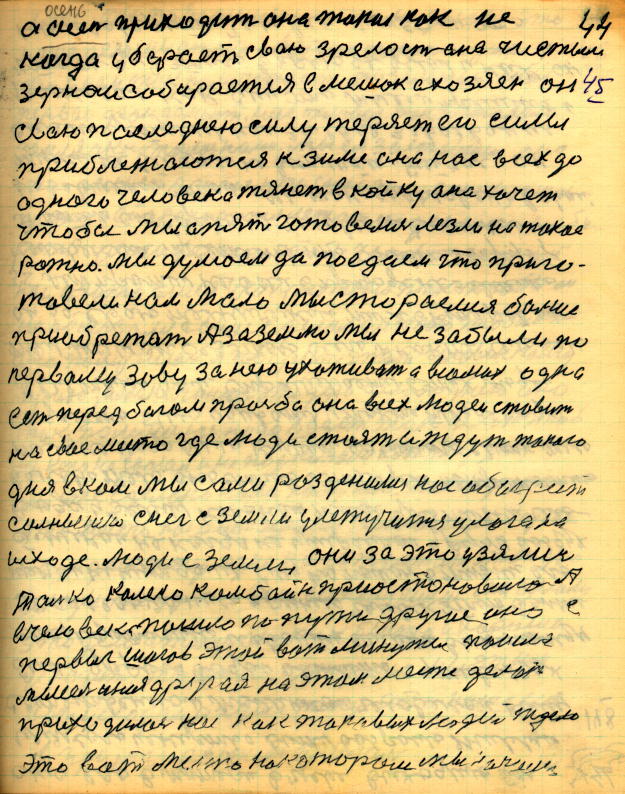 осень
а сем приходит она такая как не 44
когда убарает сваю зрелост она чистым
зерном собирается в мешок а хозяен он 45
сваю последнею силу теряет его силы
приближаются к зиме она нас всех до
одного человека тянет в койку она хочет
чтобы мы опят готовемся лезли на такое
ражно. мы думаем да поедаем что приго-
товели нам мало мы стораемся болше
приобретат А за землю мы не забыли по
первому зову за нею ухаживат а в нас их одна
ест перед богом прозба она всех людей ставит
на свае место где люди стоят и ждут такого
дня в ком мы сами розденимся нас обагреит
солнышко снег с земли улетучится у лога на
исходе. люди с земли, они за это узялис
толко колесо комбайн приостоновило А
в человека пошло по пути другое оно с
первых шагов этой вот минуты пошла
мысл иная другая на этом месте делат
приходится нас как таковых людей ждало
это вот место на котором мы